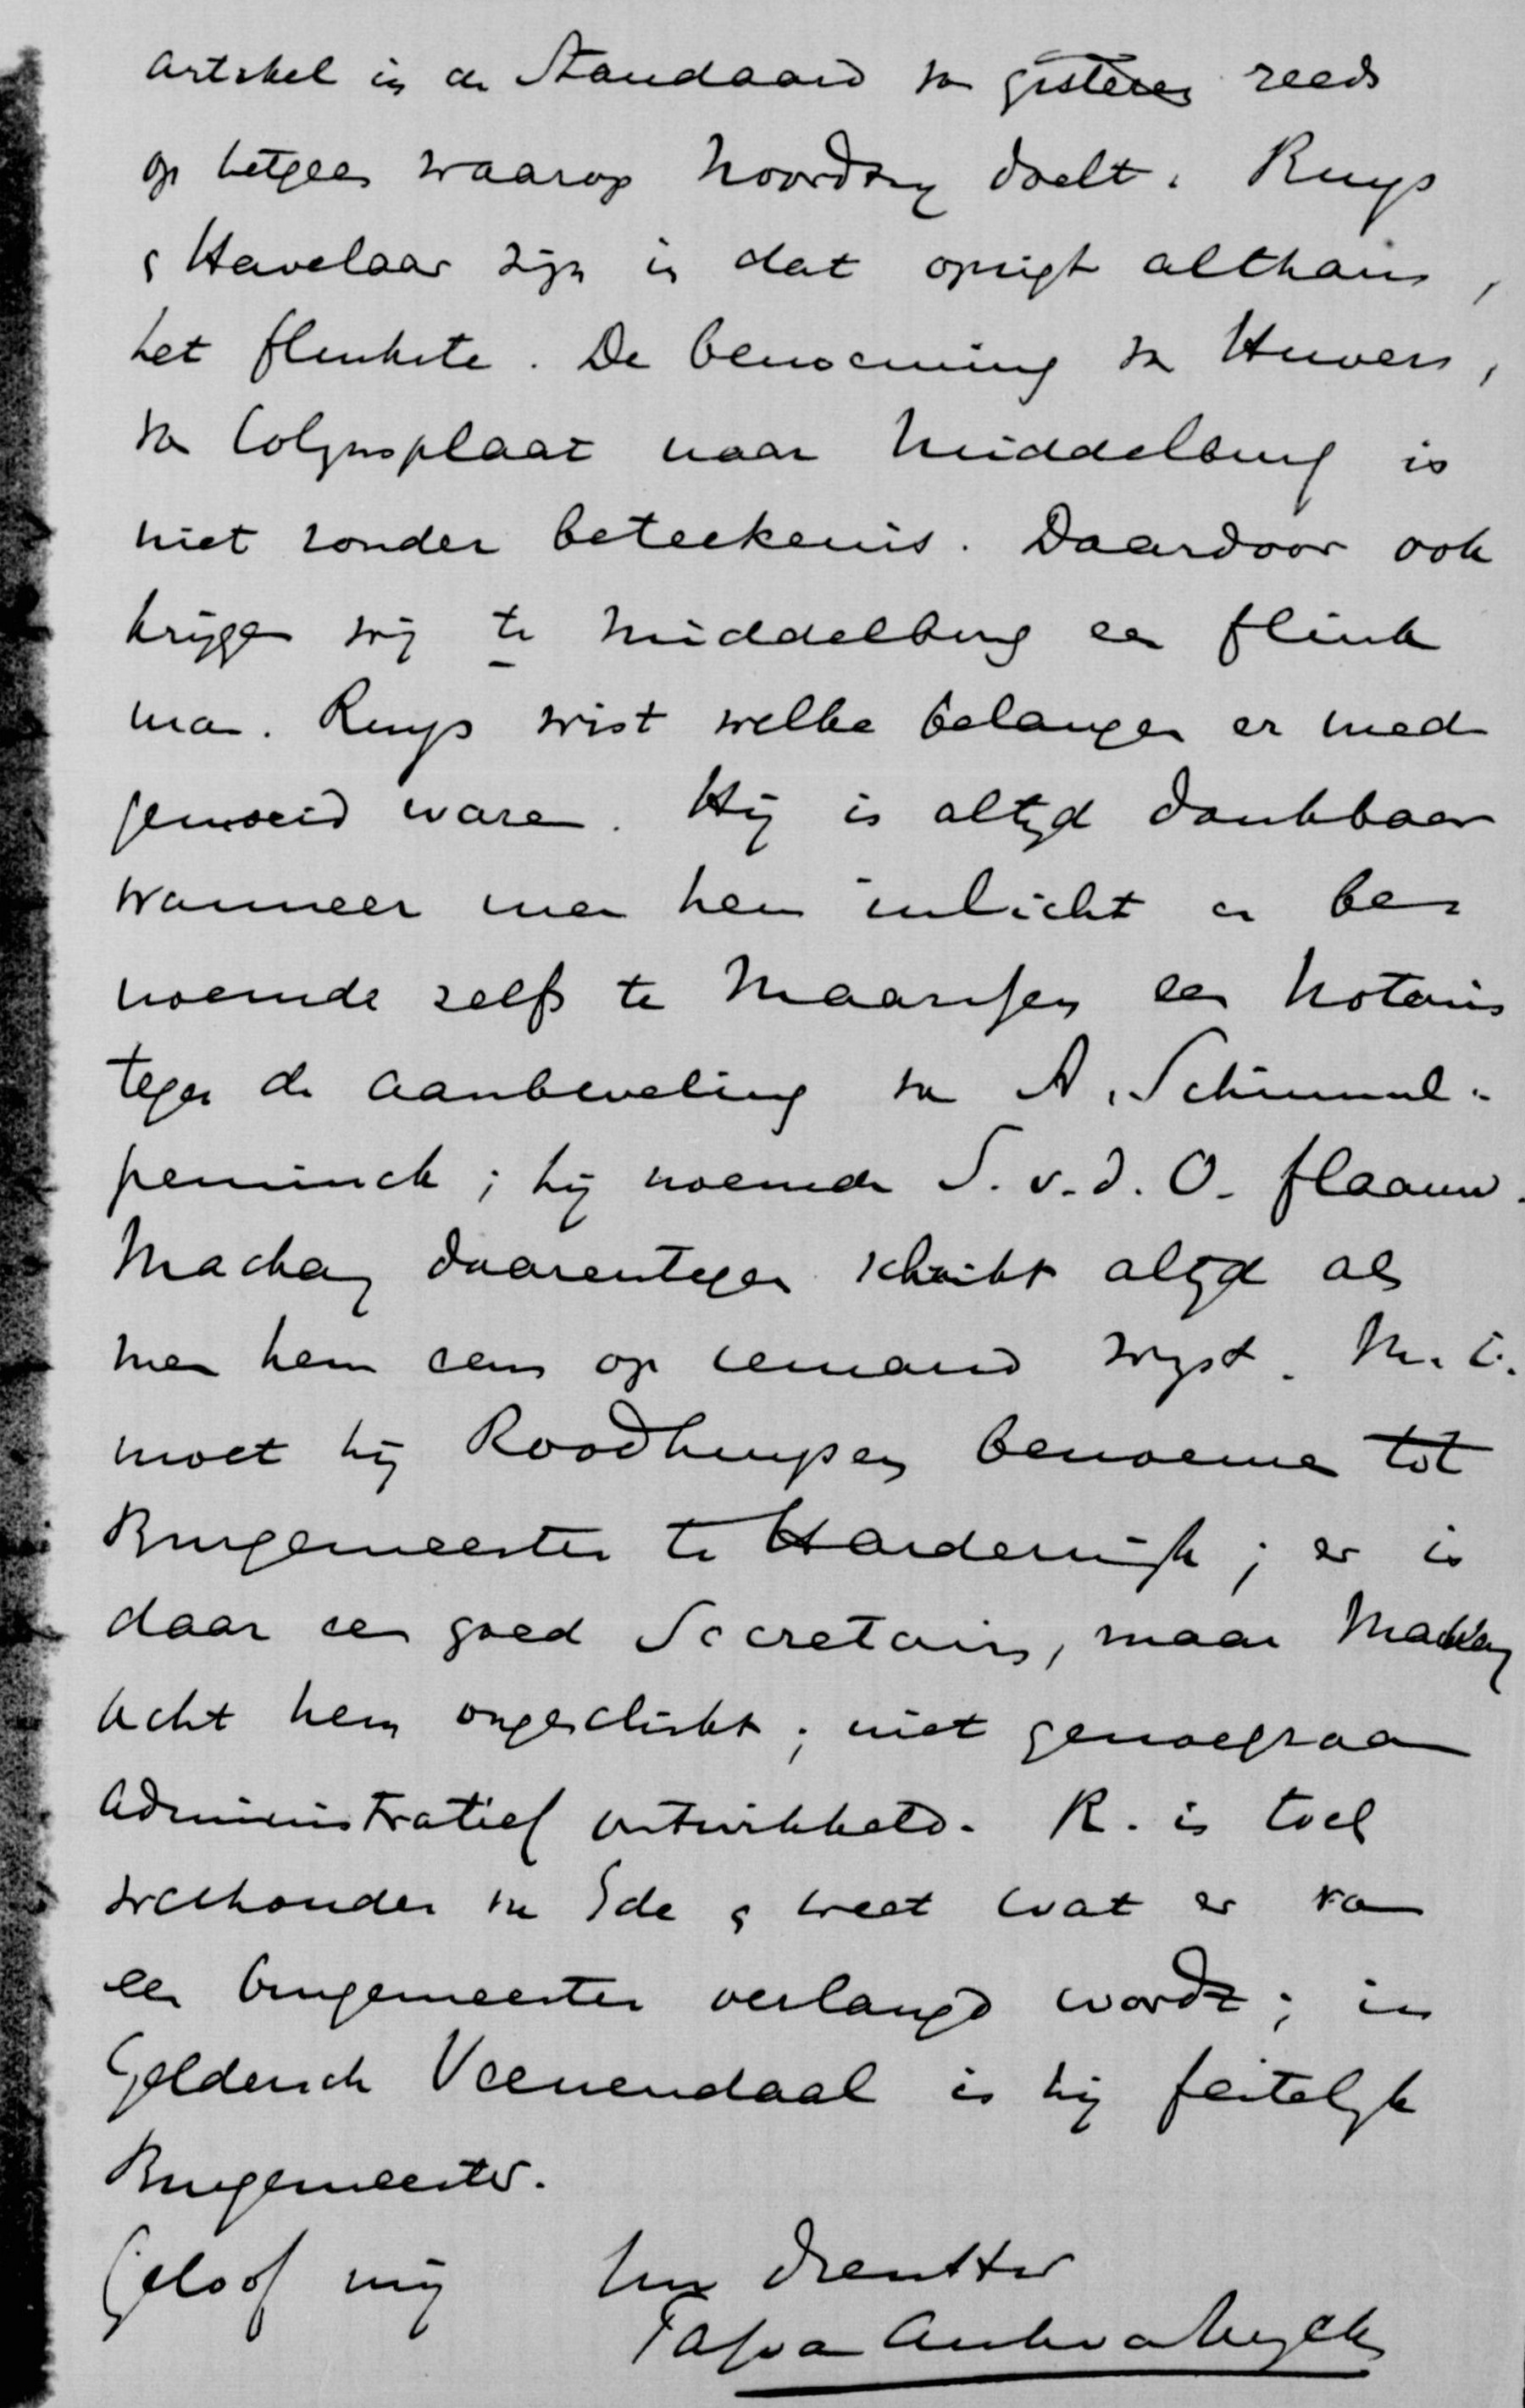 artikel in de Standaard van gisteren reeds
op hetgeen waarop Noordzy doelt. Ruys
& Havelaar zijn in dat opzigt althans,
het flinkste. De benoeming van Huvers,
van Colynsplaat naar Middelburg is
niet zonder beteekenis. Daardoor ook
krijgen wij te Middelburg een flink
man. Ruys wist welke belangen er mede
gemoeid waren. Hij is altyd dankbaar
wanneer men hem inlicht en be=
noemde zelfs te Maarssen een Notaris
tegen de aanbeveling van A. Schimmel=
penninck; hij noemde S. v. d. O. flaauw.
Mackay daarentegen schrikt altyd als
men hem eens op iemand wyst. M. i.
moet hij Roodhuyzen benoemen tot
Burgemeester te Harderwijk; er is
daar een goed Secretaris, maar Mackay
acht hem ongeschikt; niet genoegzaam
administratief ontwikkeld. R. is toch
wethouder van Ede & weet wat er van
een burgemeester verlangd wordt; in
Geldersch Veenendaal is hij feitelyk
Burgemeester.
Geloof mij Uw dienstter